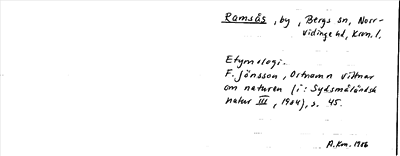 Ramsås, by, Bergs sn, Norr-
vidinge hd, Kron. l.
Etymologi.
F. Jönsson, Ortnamn vittnar
om naturen (i: Sydsmåländsk
natur III, 1984), s. 45.
A.Km. 1986